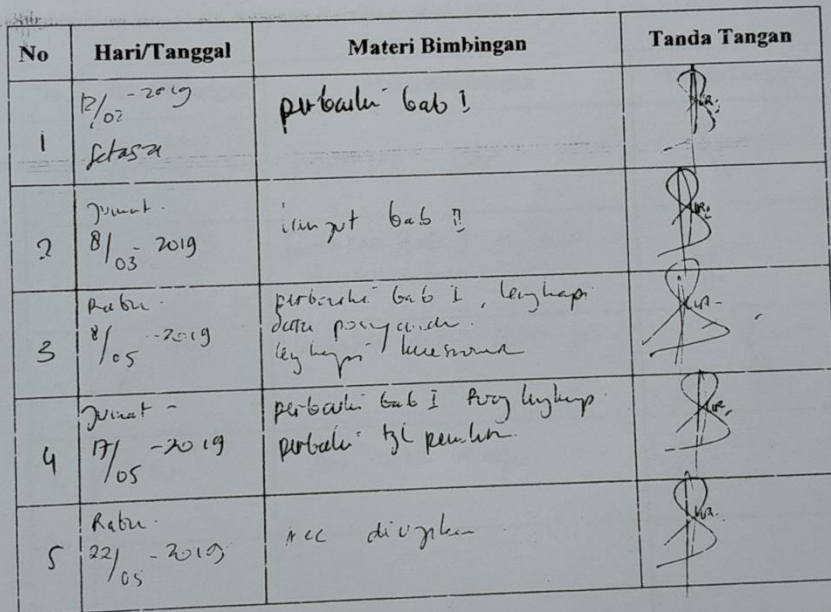 No Hari/Tanggal Materi Bimbingan Tanda Tangan
1
12/02 - 2019
Selasa
perbaiki bab I
2
Jumat.
8/03 - 2019
bab II
3
Rabu.
8/05 - 2019
perbaiki bab I, lengkapi
data posyandu.
lengkapi kuesioner
4
Jumat -
17/05 - 2019
perbaiki bab I
perbaiki tgl
5
Rabu.
22/05 - 2019
Acc diujikan